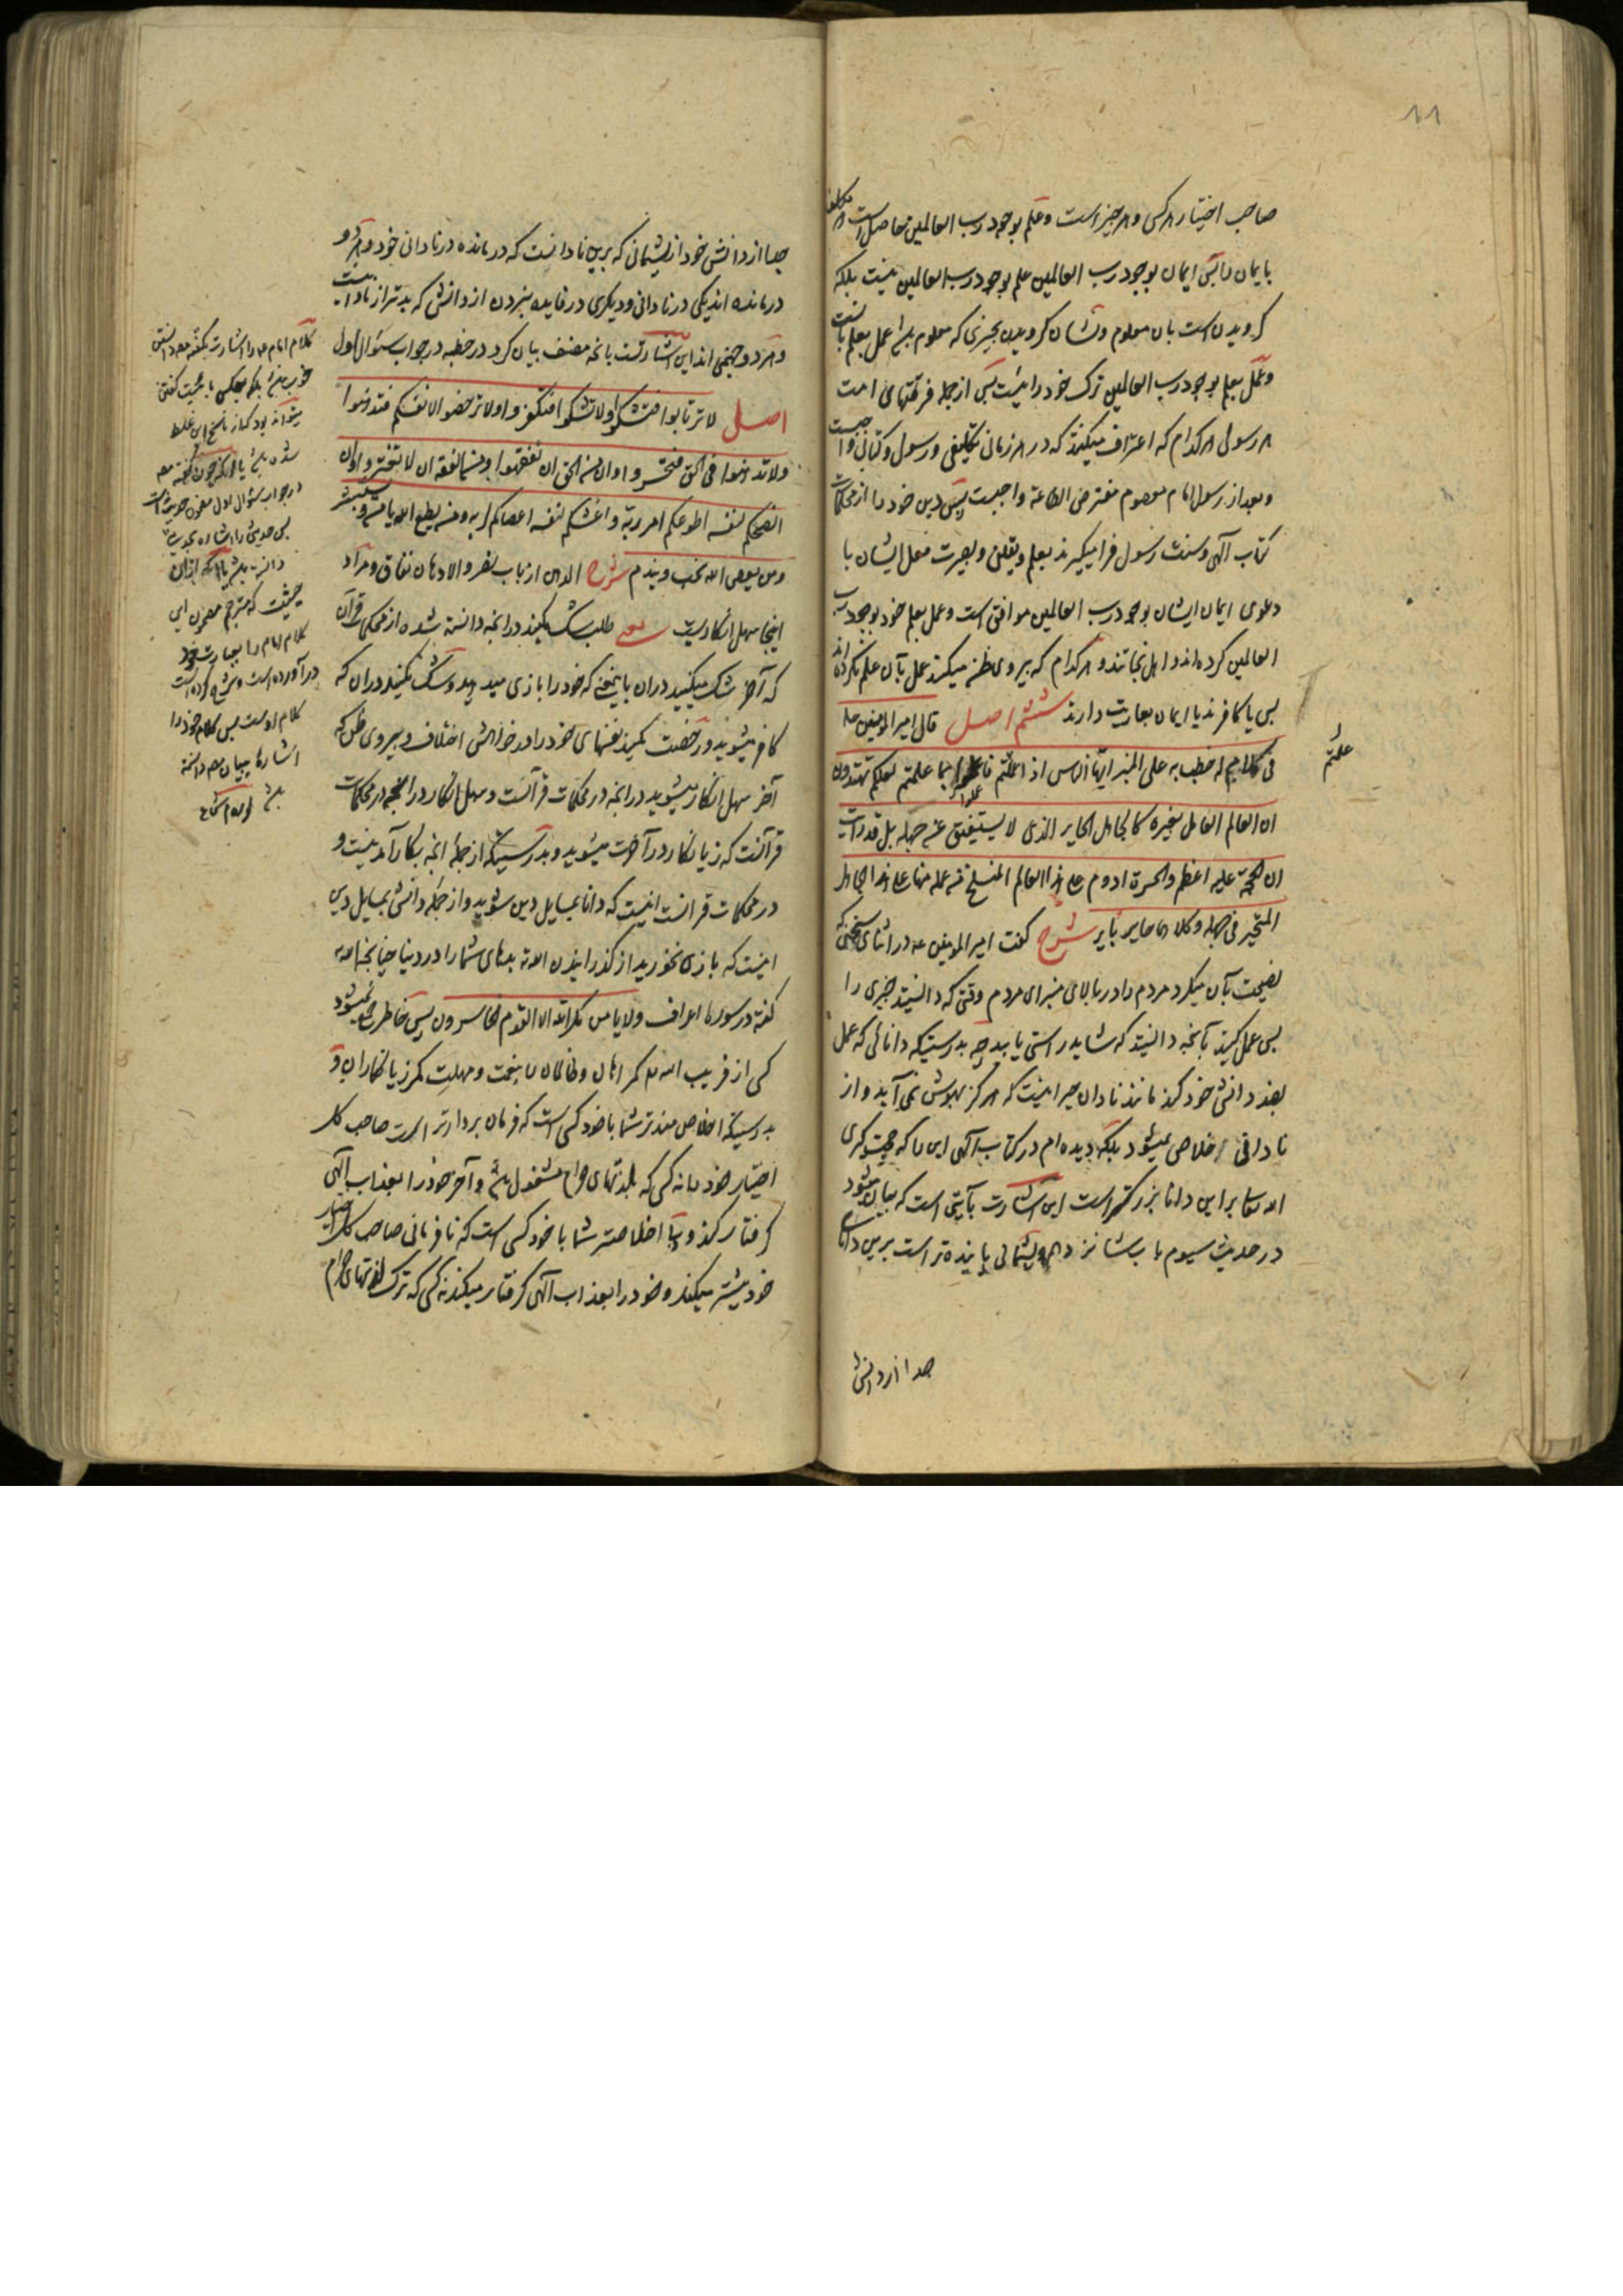 ۱۱
صاحب اختیار هر کس و هر چیز است و علم بوجود رب العالمین حاصل است هر مکلف
با ایمان را پس ایمان بوجود رب العالمین علم بوجود رب العالمین نیست بلکه
کرویدن است بان معلوم و نشان کرویدن بچیزی که معلوم باشد عمل بعلم بانست
و عمل بعلم بوجود رب العالمین ترک خود رائیست پس از جمله فرقتهای امت
هر رسول هر کدام که اعتراف میکنند که در هر زمانی تکلیفی و رسول و کتابی واجبست
و بعد از رسول امام معصوم مفترض الطاعة واجبست پس دین خود را از محکمات
کتاب الهی و سنت رسول فرا میگیرند بعلم و یقین و بصیرت فعل ایشان با
دعوی ایمان ایشان بوجود رب العالمین موافق است و عمل بعلم خود بوجود رب
العالمین کرده اند و اهل نجاتند و هر کدام که پیروی ظن میکنند عمل بآن علم نکرده اند
پس یا کافرند یا ایمان بعاریت دارند ششم اصل قال امیر المومنین ع
فی کلام له خطب به علی المنبر ایها الناس اذا علمتم فاعملوا بما علمتم لعلکم تهتدون
علمتم
ان العالم العامل بغیره کالجاهل الحایر الذی لا یستفیق عن جهله بل قد رایت
ان الحجة علیه اعظم والحسرة ادوم علی هذا العالم المنسلخ من علمه منها علی هذا الجاهل
المتحیر فی جهله وکلاهما حایر بایر شرح گفت امیر المومنین ع در اثنای سخنی که
نصیحت بآن میکرد مردم را در بالای منبر ای مردم وقتی که دانستید چیزی را
پس عمل کنید بآنچه دانستید که شاید راستی یابید چه بدرستیکه دانائی که عمل
بغیر دانش خود کند مانند نادان حیرانیست که هرگز بهوش نمی آید و از
نادانی خلاص نمیشود بلکه دیده ام در کتاب الهی این را که حجت گیری
الله تعالی بر این دانا بزرگتر است این اشارت بآیتی است که بیان میشود
در حدیث سیوم باب شانزدهم و پشیمانی پاینده تر است برین دانای
جدا از دانش
جدا از دانش خود از پشیمانی که برین نادانست که درمانده در نادانی خود و هر دو
درمانده اند یکی در نادانی و دیگری در فایده نبردن از دانش که بدتر از نادانیست
و هر دو جهنمی اند این اشارتست بانچه مصنف بیان کرد در خطبه در جواب سئوال اول
اصل لا ترتابوا فتشکوا ولا تشکوا فتکفروا ولا ترخصوا لانفسکم فتدهنوا
ولا تدهنوا فی الحق فتخسروا وان من الحق ان تفقهوا ومن الفقه ان لا تغتروا وان
انصحکم لنفسه اطوعکم لربه واغشکم لنفسه اعصاکم لربه ومن یطع الله یامن ویستبشر
ومن یعص الله یخب ویندم شرح
اینجا سهل انکاریست یعنی طلب شک مکنید در انچه دانسته شده از محکمات قرآن
که آخر شک میکنید دران باینمعنی که خود را بازی میدهید و شک مکنید دران که
کافر میشوید و رخصت مکنید نفسهای خود را در خواهش اختلاف و پیروی ظن که
آخر سهل انکار میشوید در انچه در محکمات قرآنست و سهل انکار در انچه در محکمات
قرآنست که زیانکار در آخرت میشوید و بدرستیکه از جمله انچه بکار آمدنیست و
در محکمات قرآنست اینست که دانا بمسایل دین شوید و از جمله دانش بمسایل دین
اینست که بازی نخورید از گذرانیدن الله بدهای شما را در دنیا چنانچه الله
گفته در سوره اعراف ولا یامن مکر الله الا القوم الخاسرون پس خاطر جمع نمیشود
کسی از فریب الله گمراهان و ظالمان را بنعمت و مهلت مگر زیانکاران و
بدرستیکه اخلاص مندتر شما با خود کسی است که فرمان بردارتر است صاحب کل
اختیار خود را نه کسی که بلذتهای حرام مشغول باشد و آخر خود را بعذاب الهی
گرفتار کند و بی اخلاصتر شما با خود کسی است که نافرمانی صاحب کل اختیار
خود بیشتر میکند و خود را بعذاب الهی گرفتار میکند نه کسی که ترک لذتهای حرام
کلام امام را اشارت بگفته مصنف دانستن
خوب باشد بلکه بعکس
میتواند بود که از ناسخ این غلط
شده باشد یا آنکه چون گفته مص
در جواب سئوال اول مضمون حدیث است
پس حدیث را اشاره بحدیث
دانسته باشد یا آنکه ازان
حیثیت که مترجم مضمون این
کلام امام را بعبارت خود
درآورده است و شرح کرده است
کلام اوست پس کلام خود را
اشاره ببیان مص دانسته
باشد